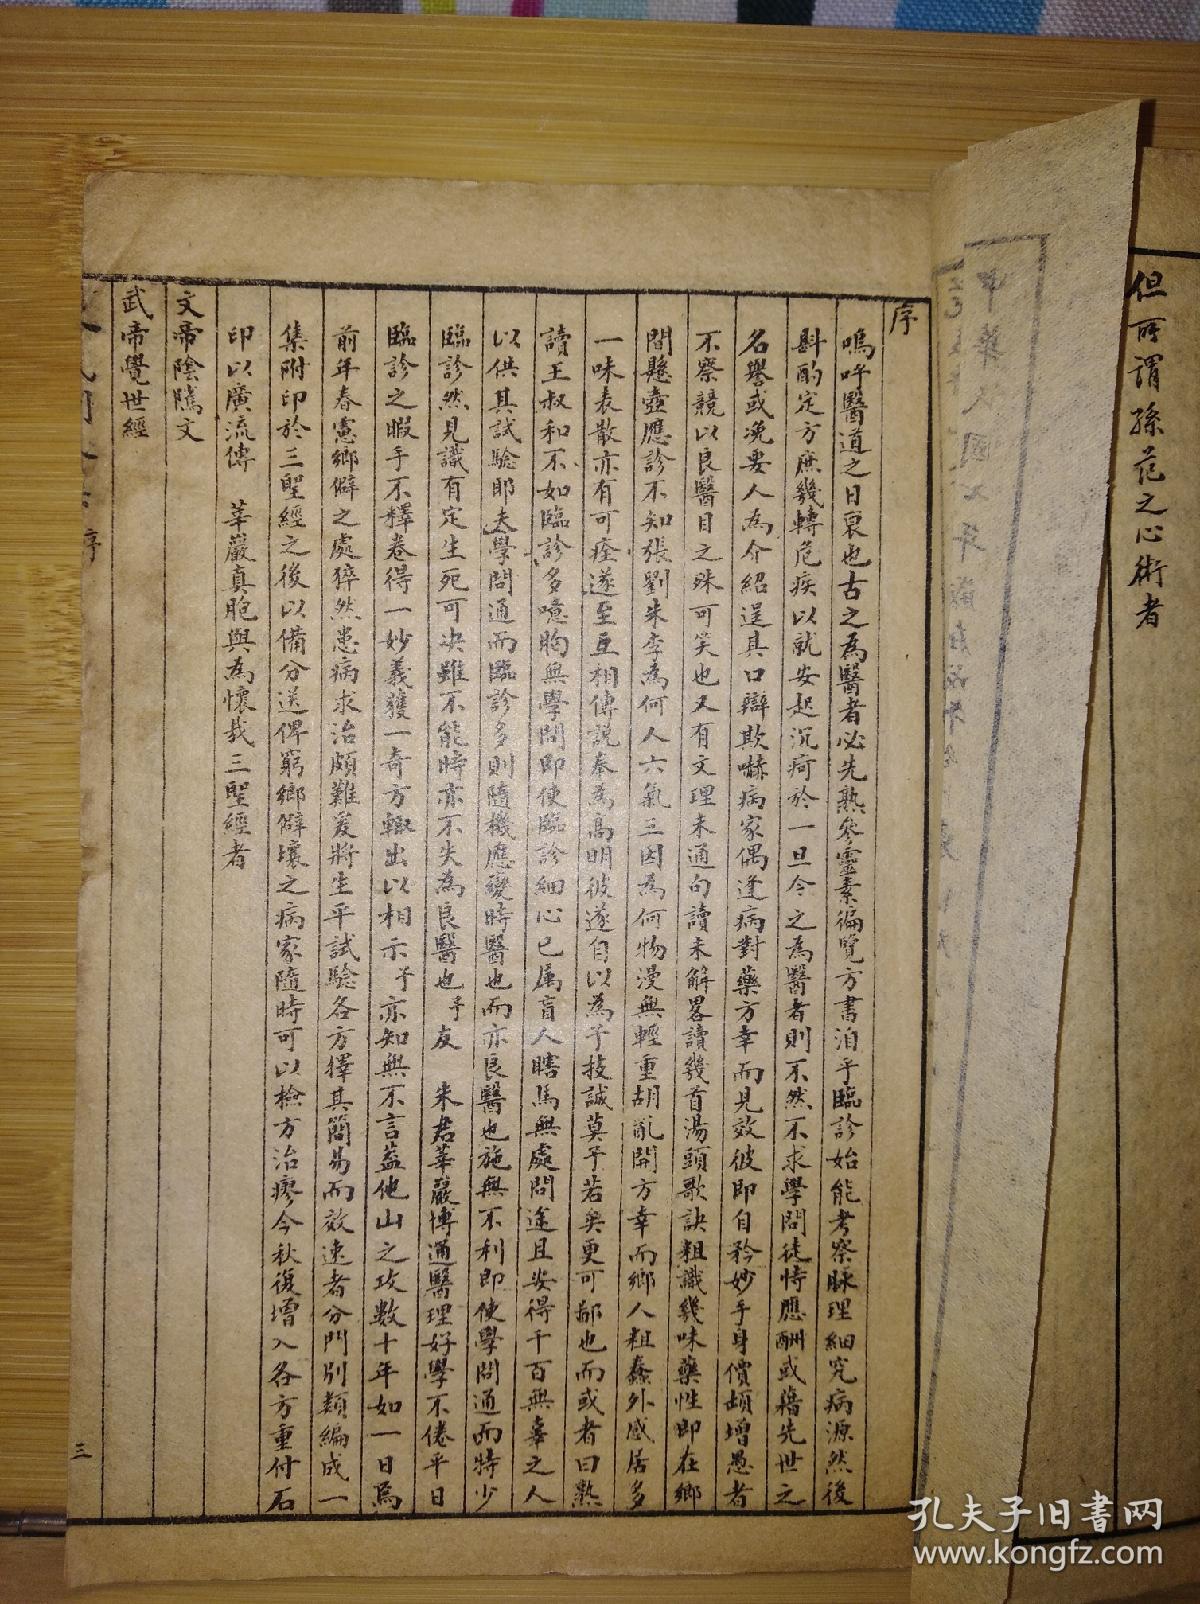 但所謂孫范之心術者
序
嗚呼醫道之日衰也古之為醫者必先熟參靈素徧覽方書洎乎臨診始能考察脉理細究病源然後
斟酌定方庶幾轉危疾以就安起沉疴於一旦今之為醫者則不然不求學問徒恃應酬或藉先世之
名譽或浼要人為介紹逞其口辯欺嚇病家偶逢病對藥方幸而見效彼即自矜妙手身價頓增愚者
不察競以良醫目之殊可笑也又有文理未通句讀未解畧讀幾首湯頭歌訣粗識幾味藥性即在鄉
間懸壺應診不知張劉朱李為何人六氣三因為何物漫無輕重胡亂開方幸而鄉人粗蠢外感居多
一味表散亦有可痊遂至互相傳説奉為高明彼遂自以為予技誠莫予若矣更可鄙也而或者曰熟
讀王叔和不如臨診多噫胸無學問即使臨診細心已属盲人瞎馬無處問途且安得千百無辜之人
以供其試驗耶夫學問通而臨診多則隨機應變時醫也而亦良醫也施無不利即使學問通而特少
臨診然見識有定生死可决雖不能時亦不失為良醫也予友　朱君華嚴博通醫理好學不倦平日
臨診之暇手不釋卷得一妙義獲一奇方輒出以相示予亦知無不言益他山之攻數十年如一日焉
前年春憲鄉僻之處猝然患病求治頗難爰將生平試驗各方擇其簡易而效速者分門别類編成一
集附印於三聖經之後以備分送俾窮鄉僻壤之病家隨時可以檢方治瘳今秋復增入各方重付石
印以廣流傳　華嚴真胞與為懷哉三聖經者
文帝陰騭文
武帝覺世經
序
三
孔夫子旧書网
www.kongfz.com